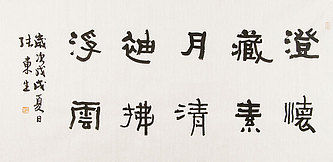 澄懷
藏素
月清
袖拂
浮雲
歲次戊戌夏日
張東生